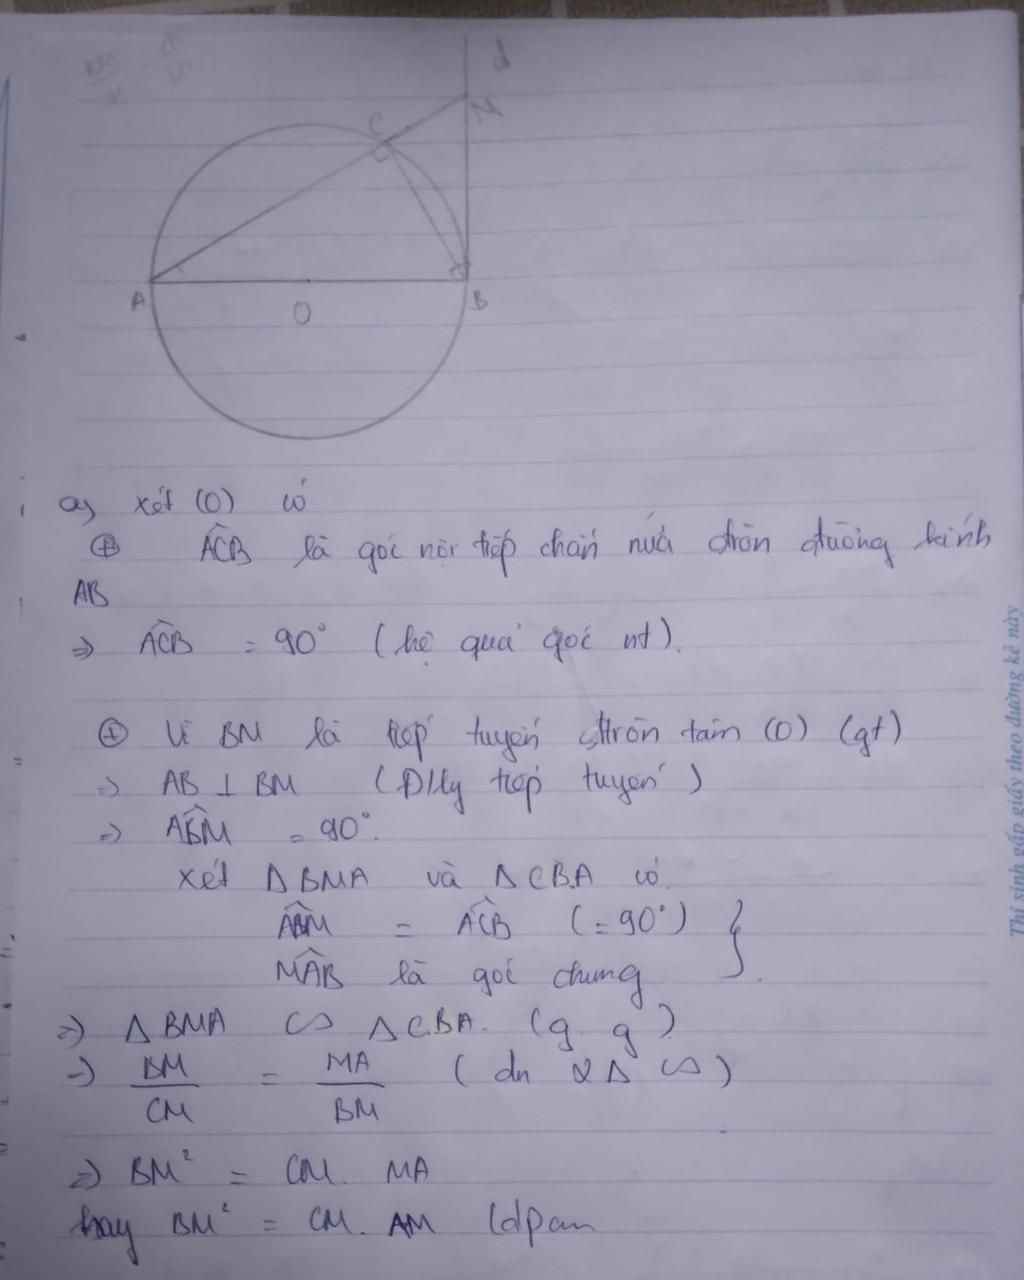 d
M
C
A
O
B
a) xét (O) có
⊕ ACB là góc nội tiếp chắn nửa đtròn đường kính
AB
⇒ ACB = 90° (hệ quả góc nt).
⊕ Vì BM là tiếp tuyến đttròn tâm (O) (gt)
⇒ AB ⊥ BM (Đlly tiếp tuyến)
⇒ ABM = 90°.
xét Δ BMA và Δ CBA có
ABM = ACB (= 90°) }
MAB là góc chung
⇒) Δ BMA ∽ Δ CBA. (g.g)
→) BM/CM = MA/BM ( dn 2Δ ∽ )
⇒) BM² = CM. MA
hay BM² = CM. AM (đpcm
Thí sinh gấp giấy theo đường kẻ này